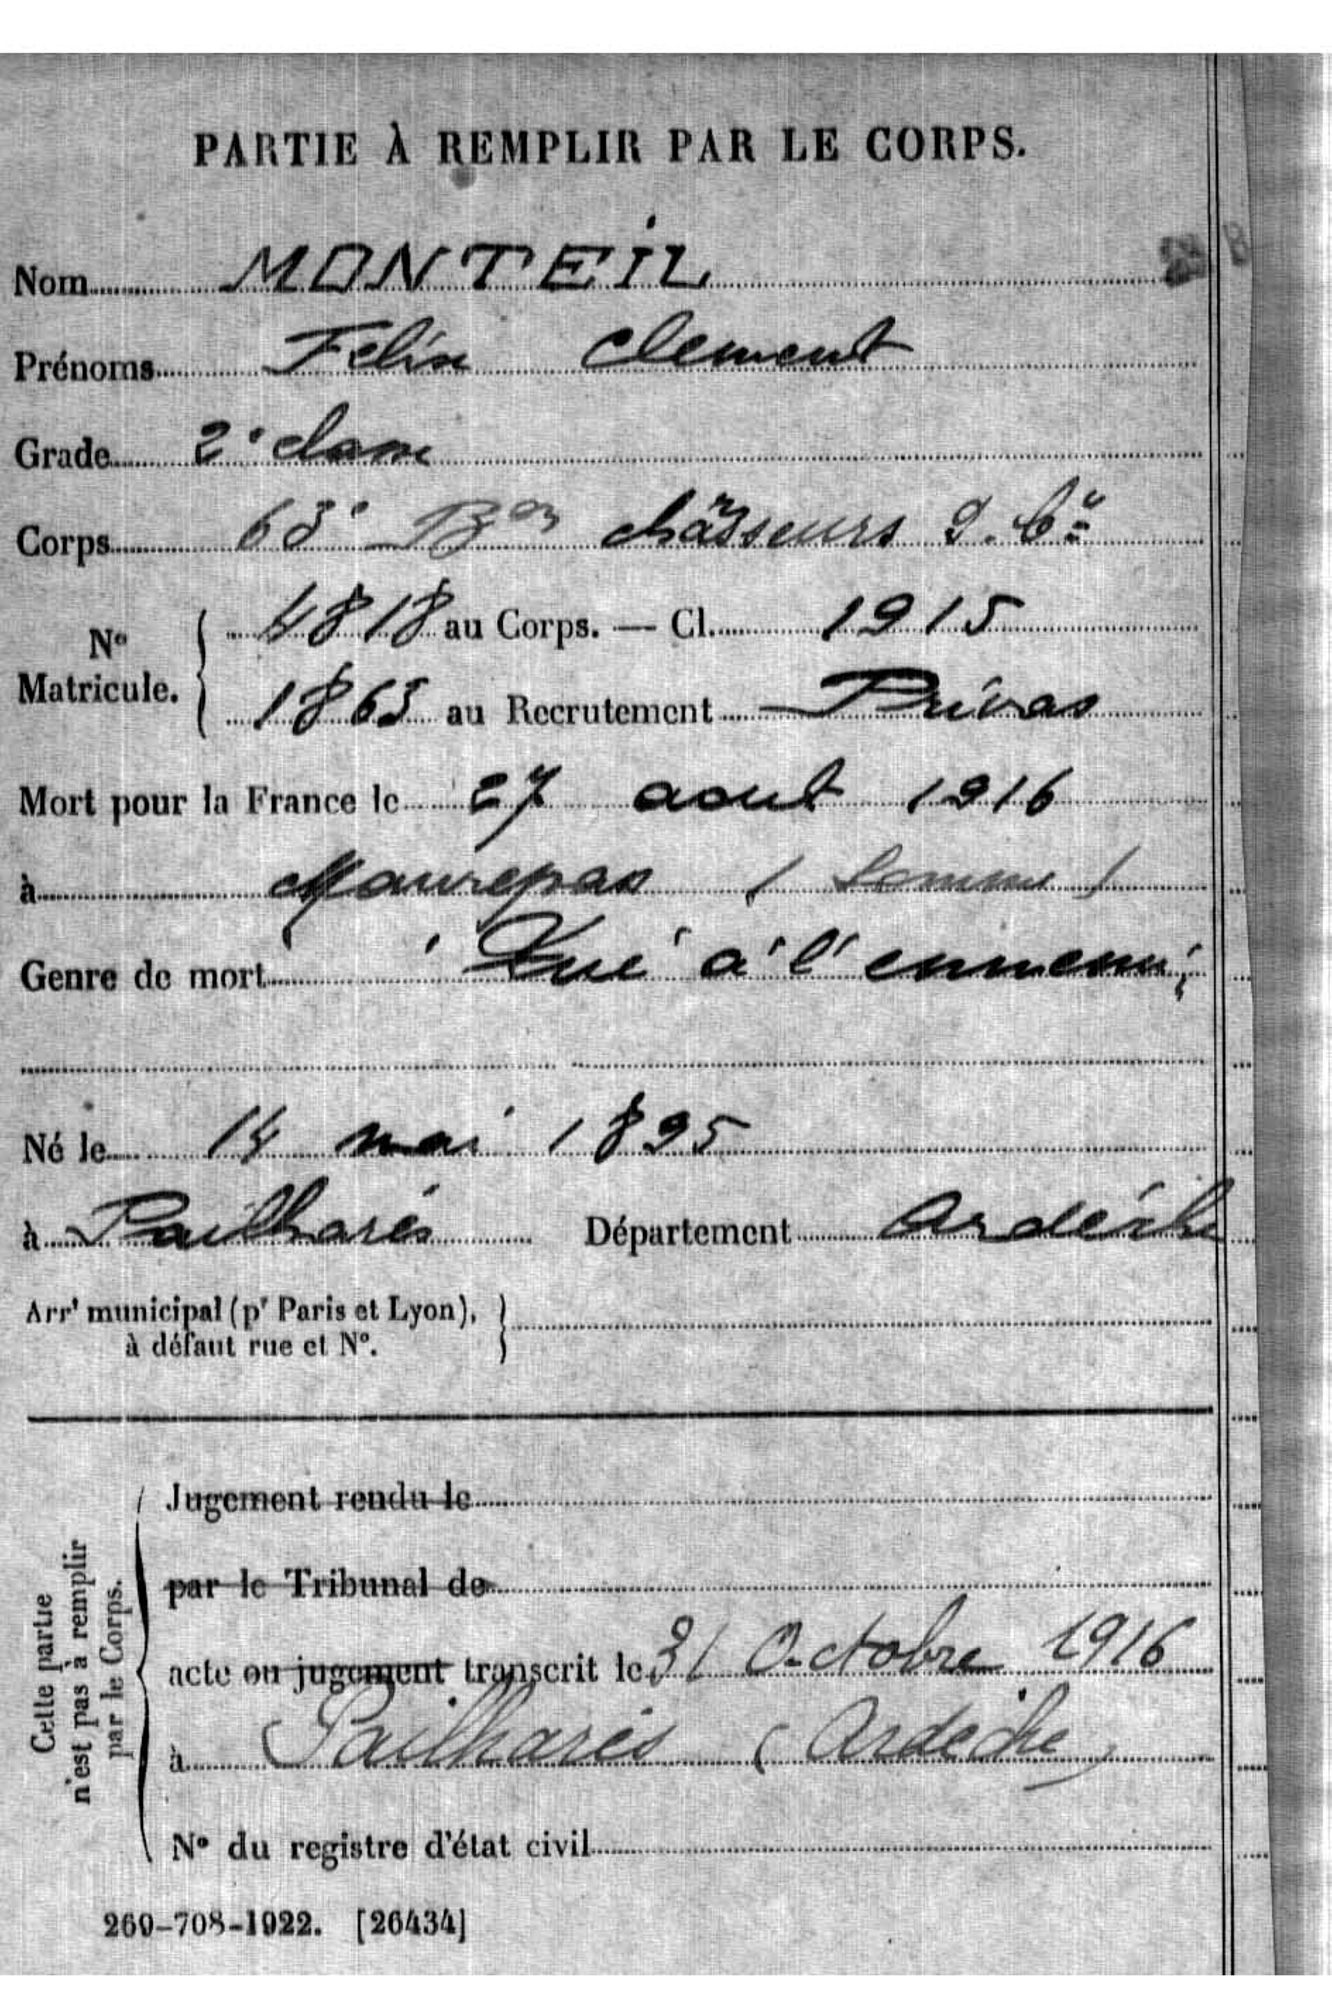 PARTIE À REMPLIR PAR LE CORPS.
Nom MONTEIL
Prénoms Felix Clement
Grade 2e classe
Corps 63e Bon chasseurs 9. Cie
No Matricule. 4818 au Corps. — Cl. 1915
1863 au Recrutement Privas
Mort pour la France le 27 aout 1916
à Maurepas (Somme)
Genre de mort Tué à l'ennemi
Né le 14 mai 1895
à Pailharès Département Ardèche
Arrt municipal (pr Paris et Lyon),
à défaut rue et No.
Cette partie
n'est pas à remplir
par le Corps.
Jugement rendu le
par le Tribunal de
acte ou jugement transcrit le 31 Octobre 1916
à Pailharès (Ardèche)
No du registre d'état civil
260-708-1922. [26434]